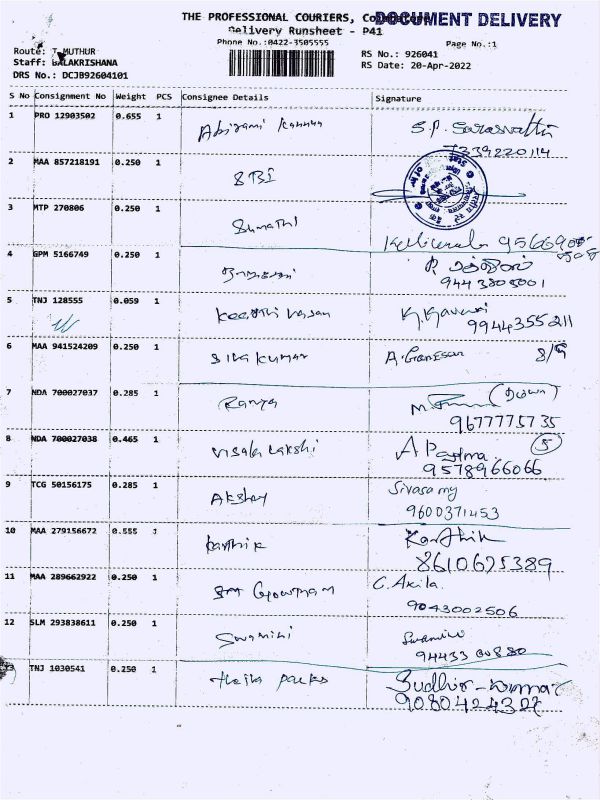 THE PROFESSIONAL COURIERS, Coimbatore
DOCUMENT DELIVERY
Delivery Runsheet - P41
Phone No.:0422-3505555
Page No.:1
Route: T MUTHUR
RS No.: 926041
Staff: BALAKRISHANA
RS Date: 20-Apr-2022
DRS No.: DCJB92604101
S No Consignment No Weight PCS Consignee Details Signature
1 PRO 12903502 0.655 1 Abirami S.P. Sarasvathi
7339220114
2 MAA 857218191 0.250 1 SBI
3 MTP 270806 0.250 1 Sumathi
4 GPM 5166749 0.250 1
9443805001
5 TNJ 128555 0.059 1 Keerthi vasan K. Kaveri
9944355211
6 MAA 941524209 0.250 1 Siva kumar A. Ganesan
7 NDA 700027037 0.285 1 Ramya
9677775735
8 NDA 700027038 0.465 1 visalakshi A Padma 5
9578966066
9 TCG 50156175 0.285 1 Akshay Sivasamy
9600371453
10 MAA 279156672 0.555 1 karthik Karthik
8610695389
11 MAA 289662922 0.250 1 Gowtham C. Akila
9043002506
12 SLM 293838611 0.250 1 Swamini Swamini
94433 00880
13 TNJ 1030541 0.250 1 packs Sudhir-kumar